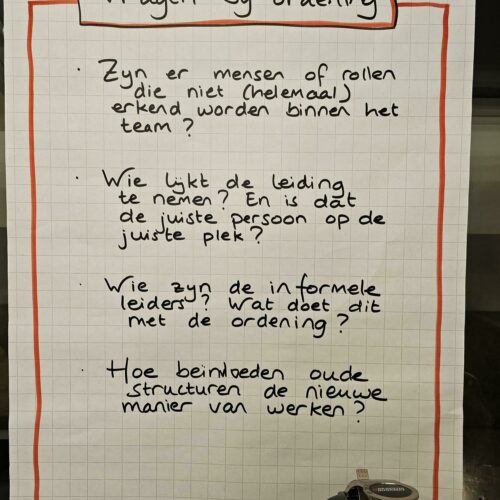 Vragen bij ordening
· Zijn er mensen of rollen
die niet (helemaal)
erkend worden binnen het
team?
· Wie lijkt de leiding
te nemen? En is dat
de juiste persoon op de
juiste plek?
· Wie zijn de informele
leiders? Wat doet dit
met de ordening?
· Hoe beïnvloeden oude
structuren de nieuwe
manier van werken?